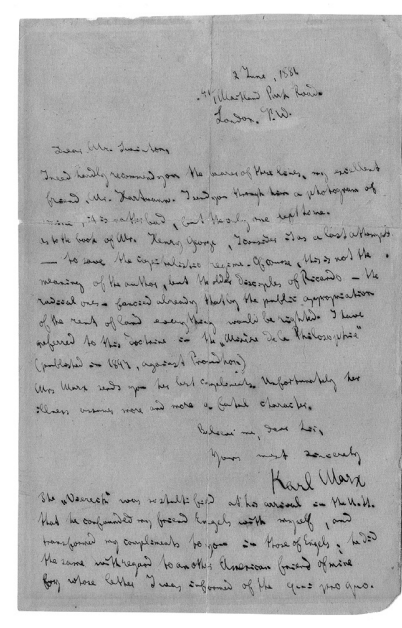 2 June, 1881
41, Maitland Park Road.
London. N.W.
Dear Mr. Swinton,
I need hardly recommend you the bearer of these lines, my excellent
friend, Mr. Hartmann. I send you through him a photogram of
mine; it is rather bad, but the only one left to me.
As to the book of Mr. Henry George, I consider it as a last attempt
— to save the capitalistic regime. Of course, this is not the
meaning of the author, but the older disciples of Ricardo — the
radical ones — fancied already that by the public appropriation
of the rent of land everything would be righted. I have
referred to this doctrine in the „Misère de la Philosophie“
(published in 1847, against Proudhon)
Mrs Marx sends you her best compliments. Unfortunately her
illness assumes more and more a fatal character.
Believe me, dear Sir,
Yours most sincerely
Karl Marx
The „Viereck“ was so at his arrival in the U. St.
that he confounded my friend Engels with myself, and
transformed my compliments to you in those of Engels; he did
the same with regard to another American friend of mine
by whose letter I was informed of the qui pro quo.